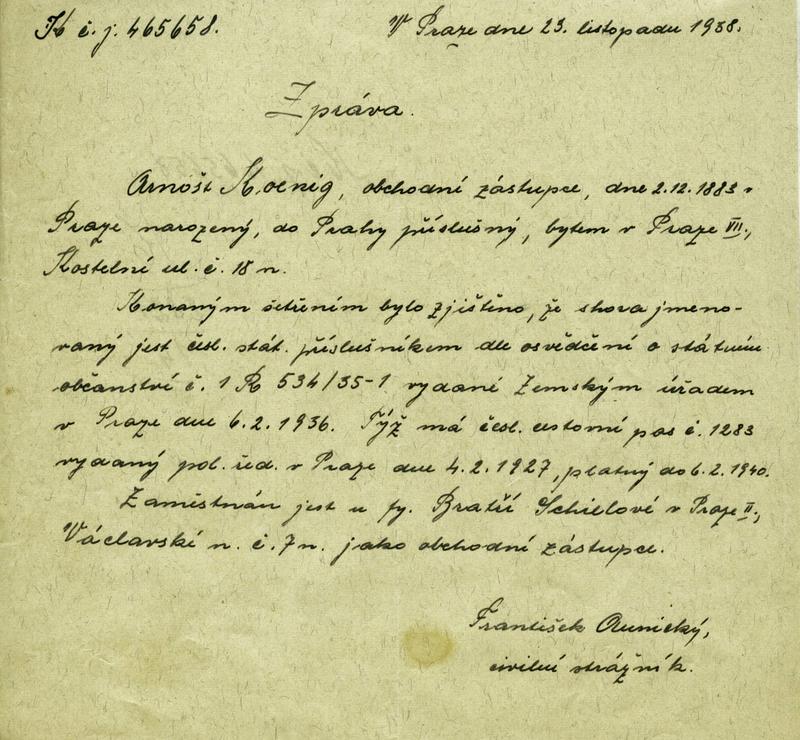 K č. j. 465658. V Praze dne 23. listopadu 1938.
Zpráva.
Arnošt Koenig, obchodní zástupce, dne 2.12.1883 v
Praze narozený, do Prahy příslušný, bytem v Praze VII.,
Kostelní ul. č. 18 n.
Konaným šetřením bylo zjištěno, že shora jmeno-
vaný jest čsl. stát. příslušníkem dle osvědčení o státním
občanství č. 1 R 534/35-1 vydané Zemským úřadem
v Praze dne 6.2.1936. Týž má čsl. cestovní pas č. 1283
vydaný pol. řed. v Praze dne 4.2.1927, platný do 6.2.1940.
Zaměstnán jest u fy. Bratří Schielové v Praze II.,
Václavské n. č. 7 n. jako obchodní zástupce.
František
civilní strážník.